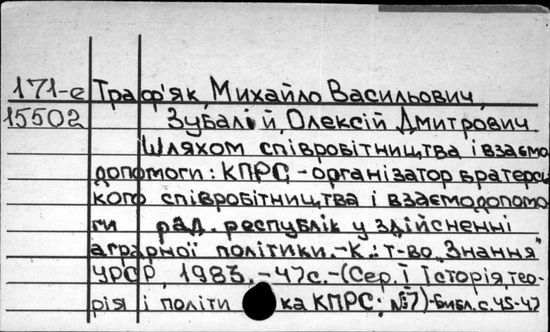 171-е Траф'як, Михайло Васильович,
15502 Зубалій, Олексій Дмитрович
Шляхом співробітництва і взаємо
допомоги: КПРС - організатор братерсь
кого співробітництва і взаємодопомо
ги рад. республік у здійсненні
аграрної політики.-К.: т-во „Знання"
УРСР, 1983.-47с.-(Сер. І Історія, тео-
рія і політи ка КПРС; №7)-Бібл.с.45-47